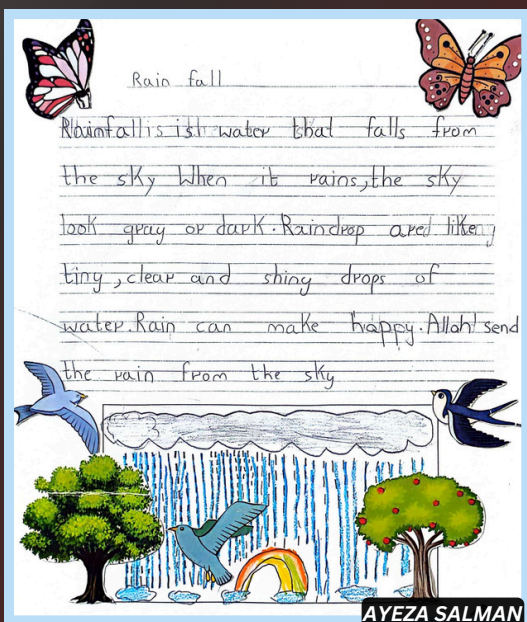 Rain fall
Rainfall is is water that falls from
the sky When it rains, the sky
look gray or dark. Raindrop are like
tiny, clear and shiny drops of
water. Rain can make happy. Allah send
the rain from the sky
AYEZA SALMAN